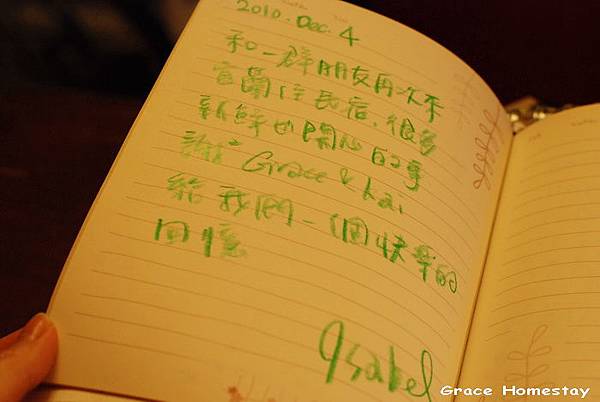 2010. Dec. 4
和一群朋友再次來
宜蘭住民宿、很多
新鮮也開心的事
謝謝 Grace & Kai
給我們一個快樂的
回憶
Isabel
Grace Homestay